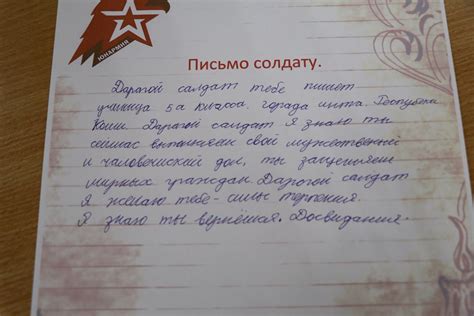 ЮНАРМИЯ
Письмо солдату.
Дарагой салдат тебе пишет
ученица 5а класса, горада инта. Республики
Коми. Дарагой салдат Я знаю ты
сейчас выполняеш свой мужественый
и человеческий долг, ты защещяеш
мирных граждан. Дарагой салдат
Я желаю тебе - силы терпения.
Я знаю ты вернёшся. Досвидания.